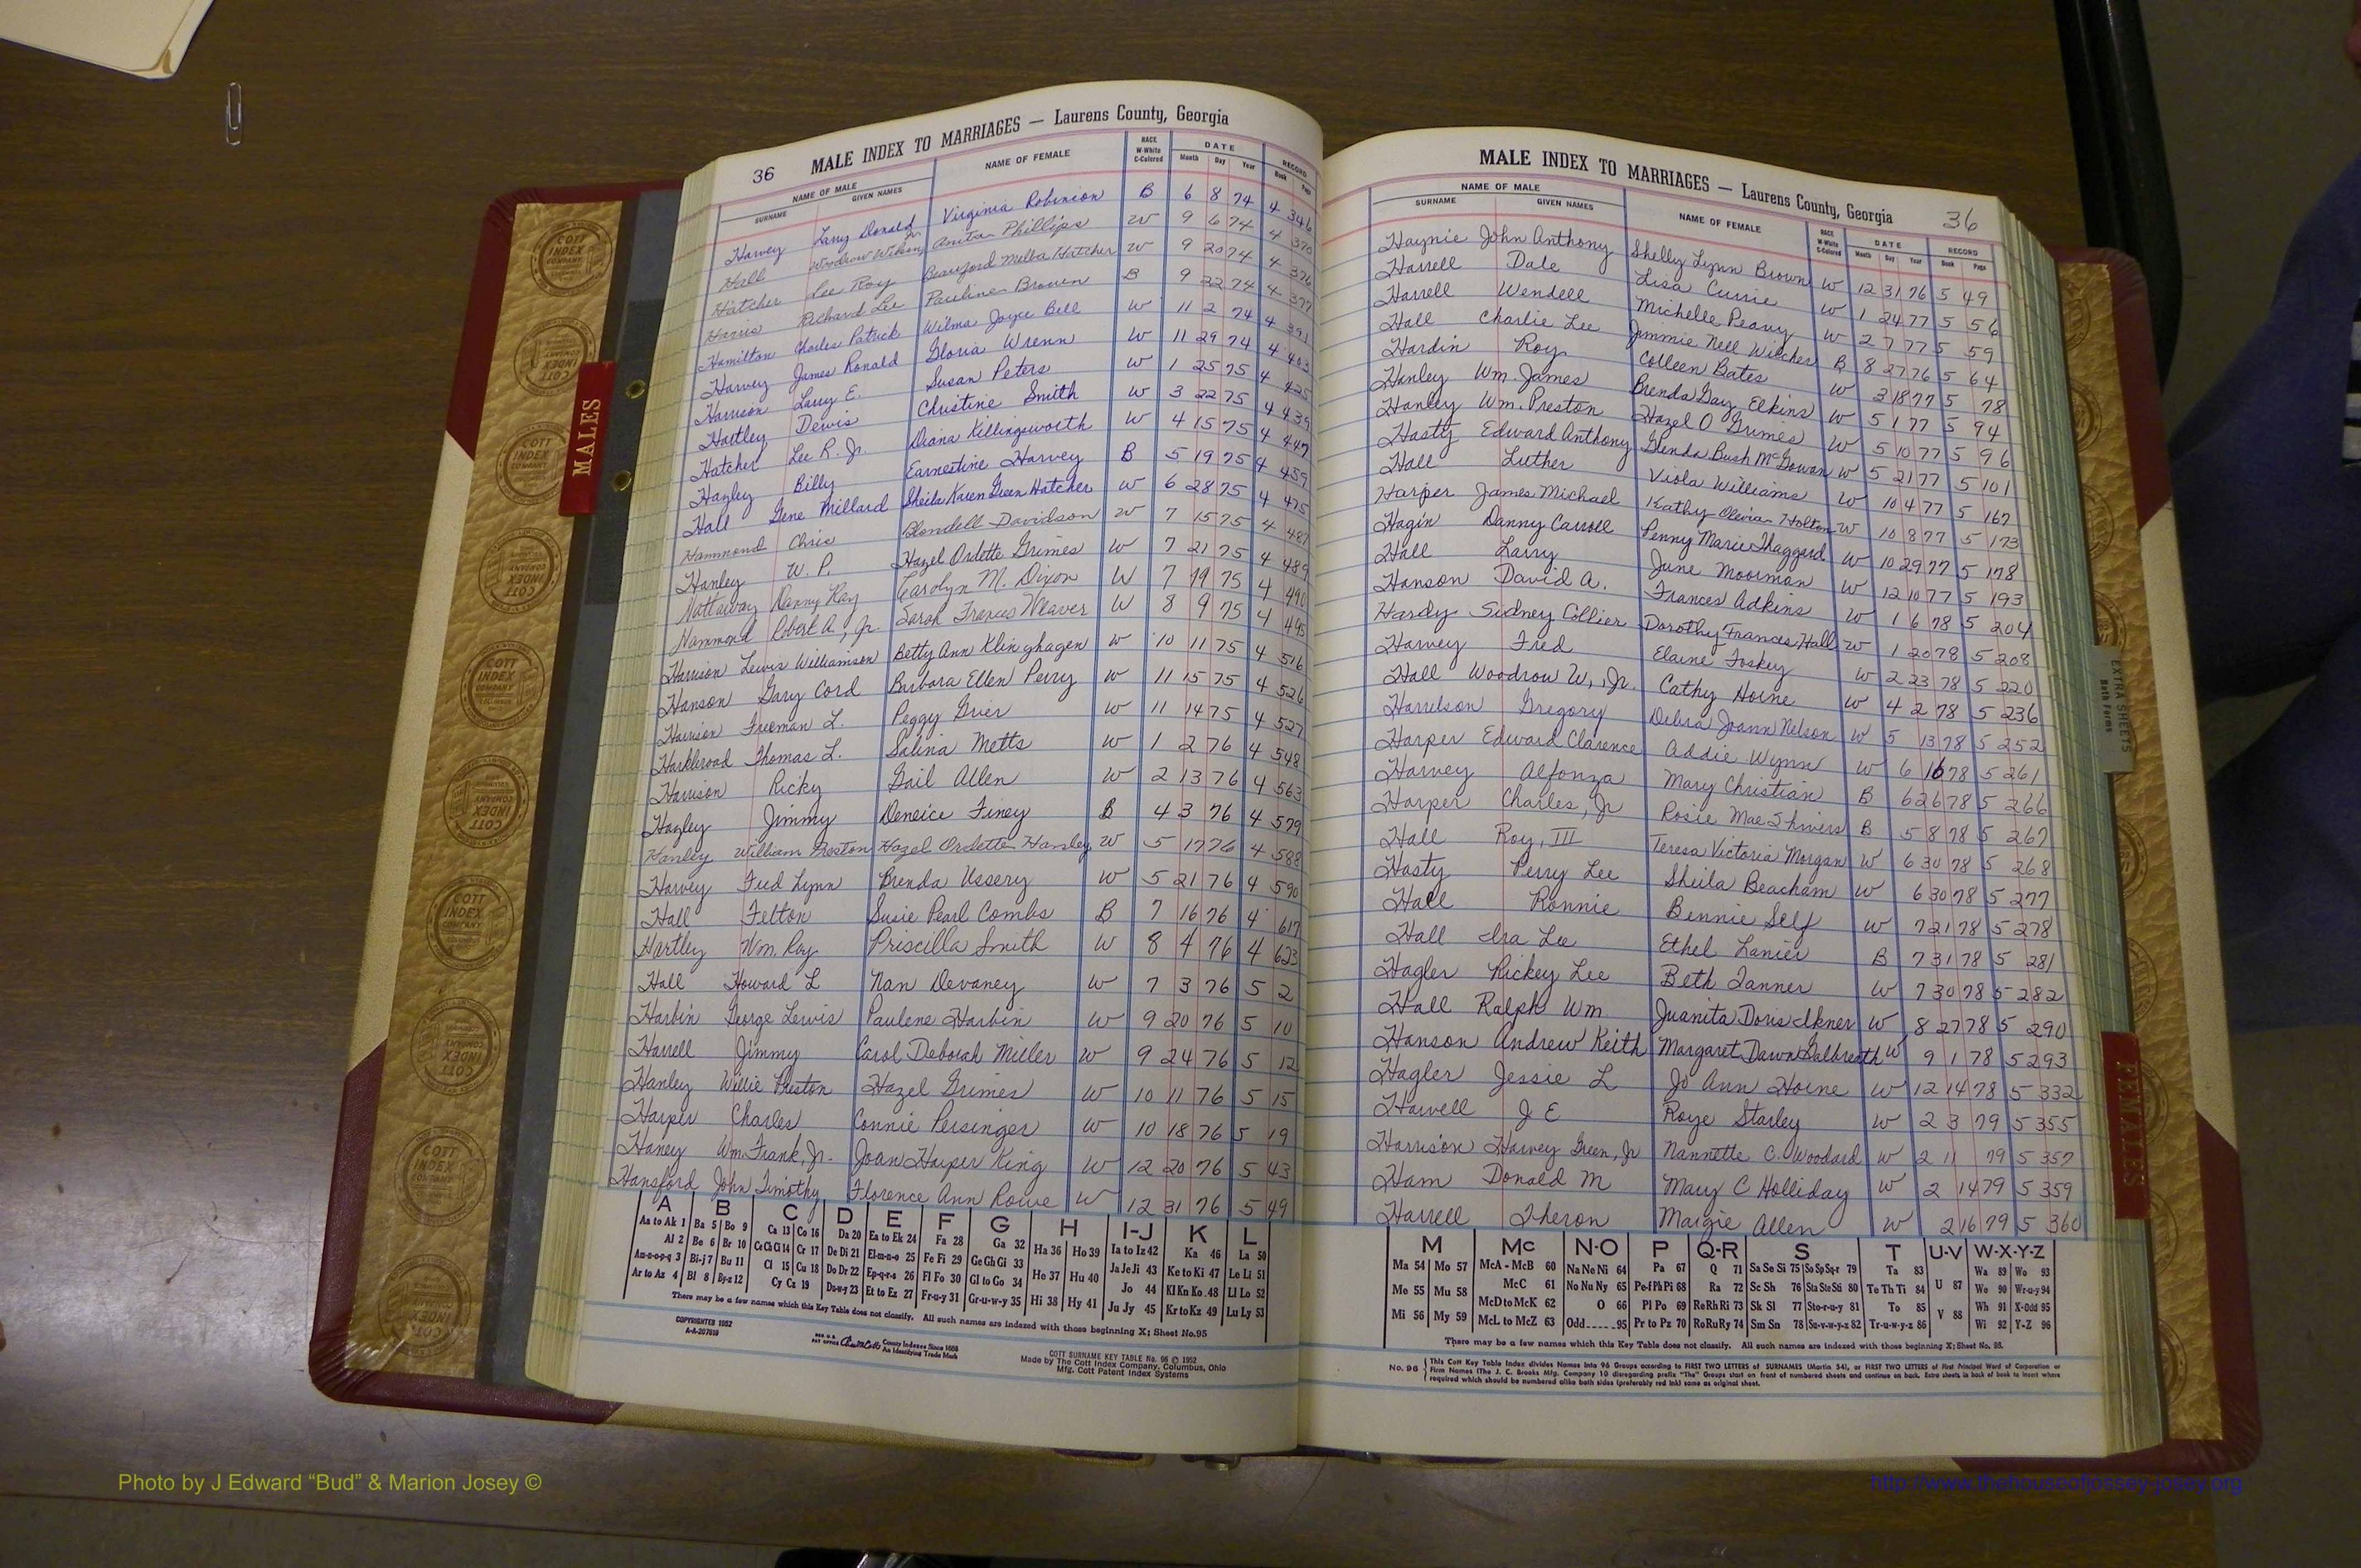 36 MALE INDEX TO MARRIAGES — Laurens County, Georgia
NAME OF MALE NAME OF FEMALE RACE W-White C-Colored DATE RECORD
SURNAME GIVEN NAMES Month Day Year Book Page
Harvey Larry Donald Virginia Robinson B 6 8 74 4 346
Hall Woodrow Wilson, Jr. Anita Phillips W 9 6 74 4 370
Hatcher Lee Roy Beauford Melba Hatcher W 9 20 74 4 376
Harris Richard Lee Pauline Brown B 9 22 74 4 377
Hamilton Charles Patrick Wilma Joyce Bell W 11 2 74 4 391
Harvey James Ronald Gloria Wrenn W 11 29 74 4 403
Harrison Larry E. Susan Peters W 1 25 75 4 425
Hartley Dewis Christine Smith W 3 22 75 4 439
Hatcher Lee R. Jr. Diana Killingsworth W 4 15 75 4 447
Hazley Billy Earnestine Harvey B 5 19 75 4 459
Hall Gene Millard Sheila Karen Green Hatcher W 6 28 75 4 475
Hammond Chris Blondell Davidson W 7 15 75 4 487
Hanley W. P. Hazel Ordette Grimes W 7 21 75 4 489
Hattaway Danny Ray Carolyn M. Dixon W 7 19 75 4 490
Hammond Robert A., Jr. Sarah Frances Weaver W 8 9 75 4 495
Harrison Lewis Williamson Betty Ann Klinghagen W 10 11 75 4 516
Hanson Gary Cord Barbara Ellen Perry W 11 15 75 4 526
Harrison Freeman L. Peggy Grier W 11 14 75 4 527
Harklroad Thomas L. Salina Metts W 1 2 76 4 548
Harrison Ricky Gail Allen W 2 13 76 4 563
Hazley Jimmy Deneice Finey B 4 3 76 4 579
Hanley William Preston Hazel Ordette Hanley W 5 17 76 4 588
Harvey Fred Lynn Brenda Ussery W 5 21 76 4 590
Hall Felton Susie Pearl Combs B 7 16 76 4 617
Hartley Wm. Roy Priscilla Smith W 8 4 76 4 623
Hall Howard L Nan Devaney W 7 3 76 5 2
Harbin George Lewis Paulene Harbin W 9 20 76 5 10
Harrell Jimmy Carol Deborah Miller W 9 24 76 5 12
Hanley Willie Preston Hazel Grimes W 10 11 76 5 15
Harper Charles Connie Persinger W 10 18 76 5 19
Haney Wm. Frank, Jr. Joan Harper King W 12 20 76 5 43
Hansford John Timothy Florence Ann Rowe W 12 31 76 5 49
A B C D E F G H I-J K L
Aa to Ak 1 Ba 5 Bo 9 Ca 13 Co 16 Da 20 Ea to Ek 24 Fa 28 Ga 32 Ha 36 Ho 39 Ia to Iz 42 Ka 46 La 50
Al 2 Be 6 Br 10 Ce Ch Ci 14 Cr 17 De Di 21 El-m-n-o 25 Fe Fi 29 Ge Gh Gi 33 Ja Je Ji 43 Ke to Ki 47 Le Li 51
An-o-p-q 3 Bi-j 7 Bu 11 Cl 15 Cu 18 Do Dr 22 Ep-q-r-s 26 Fl Fo 30 Gl to Go 34 He 37 Hu 40 Jo 44 Kl Kn Ko 48 Ll Lo 52
Ar to Az 4 Bl 8 By-z 12 Cy Cz 19 Du-w-y 23 Et to Ez 27 Fr-u-y 31 Gr-u-w-y 35 Hi 38 Hy 41 Ju Jy 45 Kr to Kz 49 Lu Ly 53
There may be a few names which this Key Table does not classify. All such names are indexed with those beginning X; Sheet No. 95
COPYRIGHTED 1952
A-A-207019
County Indexes Since 1888
An Identifying Trade Mark
COTT SURNAME KEY TABLE No. 96 © 1952
Made by The Cott Index Company, Columbus, Ohio
Mfg. Cott Patent Index Systems
MALE INDEX TO MARRIAGES — Laurens County, Georgia 36
NAME OF MALE NAME OF FEMALE RACE W-White C-Colored DATE RECORD
SURNAME GIVEN NAMES Month Day Year Book Page
Haynie John Anthony Shelly Lynn Brown W 12 31 76 5 49
Harrell Dale Lisa Currie W 1 24 77 5 56
Harrell Wendell Michelle Peavy W 2 7 77 5 59
Hall Charlie Lee Jimmie Nell Witcher B 8 27 76 5 64
Hardin Roy Colleen Bates W 3 18 77 5 78
Hanley Wm. James Brenda Gay Elkins W 5 1 77 5 94
Hanley Wm. Preston Hazel O Grimes W 5 10 77 5 96
Hasty Edward Anthony Glenda Bush McGowan W 5 21 77 5 101
Hall Luther Viola Williams W 10 4 77 5 167
Harper James Michael Kathy Olivia Holton W 10 8 77 5 173
Hagin Danny Carroll Penny Marie Haggard W 10 29 77 5 178
Hall Larry June Moorman W 12 10 77 5 193
Hanson David A. Frances Adkins W 1 6 78 5 204
Hardy Sidney Collier Dorothy Frances Hall W 1 20 78 5 208
Harvey Fred Elaine Foskey W 2 23 78 5 220
Hall Woodrow W., Jr. Cathy Horne W 4 2 78 5 236
Harrelson Gregory Debra Joann Nelson W 5 13 78 5 252
Harper Edward Clarence Addie Wynn W 6 16 78 5 261
Harvey Alfonza Mary Christian B 6 26 78 5 266
Harper Charles, Jr Rosie Mae Shivers B 5 8 78 5 267
Hall Roy, III Teresa Victoria Morgan W 6 30 78 5 268
Hasty Perry Lee Sheila Beacham W 6 30 78 5 277
Hall Ronnie Bennie Self W 7 21 78 5 278
Hall Ira Lee Ethel Lanier B 7 31 78 5 281
Hagler Rickey Lee Beth Tanner W 7 30 78 5 282
Hall Ralph Wm. Juanita Doris Ikner W 8 27 78 5 290
Hanson Andrew Keith Margaret Dawn Galbreath W 9 1 78 5 293
Hagler Jessie L Jo Ann Horne W 12 14 78 5 332
Harvell J E Roye Starley W 2 3 79 5 355
Harrison Harvey Green, Jr Nannette C. Woodard W 2 11 79 5 357
Ham Donald M Mary C Holliday W 2 14 79 5 359
Harrell Theron Margie Allen W 2 16 79 5 360
M Mc N-O P Q-R S T U-V W-X-Y-Z
Ma 54 Mo 57 McA - McB 60 Na Ne Ni 64 Pa 67 Q 71 Sa Se Si 75 So Sp Sq-r 79 Ta 83 Wa 89 Wo 93
Me 55 Mu 58 McC 61 No Nu Ny 65 Pe-f Ph Pi 68 Ra 72 Sc Sh 76 Sta Ste Sti 80 Te Th Ti 84 U 87 We 90 Wr-u-y 94
McD to McK 62 O 66 Pl Po 69 Re Rh Ri 73 Sk Sl 77 Sto-r-u-y 81 To 85 Wh 91 X-Odd 95
Mi 56 My 59 McL to McZ 63 Odd-----95 Pr to Pz 70 Ro Ru Ry 74 Sm Sn 78 Su-v-w-y-z 82 Tr-u-w-y-z 86 V 88 Wi 92 Y-Z 96
There may be a few names which this Key Table does not classify. All such names are indexed with those beginning X; Sheet No. 95.
No. 96 This Cott Key Table Index divides Names into 96 Groups according to FIRST TWO LETTERS of SURNAMES (Martin 54), or FIRST TWO LETTERS of First Principal Word of Corporation or
Firm Names (The J. C. Brooks Mfg. Company 10 disregarding prefix "The" Groups start on front of numbered sheets and continue on back. Extra sheets in back of book to insert where
required which should be numbered alike both sides (preferably red ink) same as original sheet.
MALES
FEMALES
EXTRA SHEETS
Both Forms
COTT INDEX COMPANY
Photo by J Edward “Bud” & Marion Josey ©
http://www.thehouseofjossey-josey.org